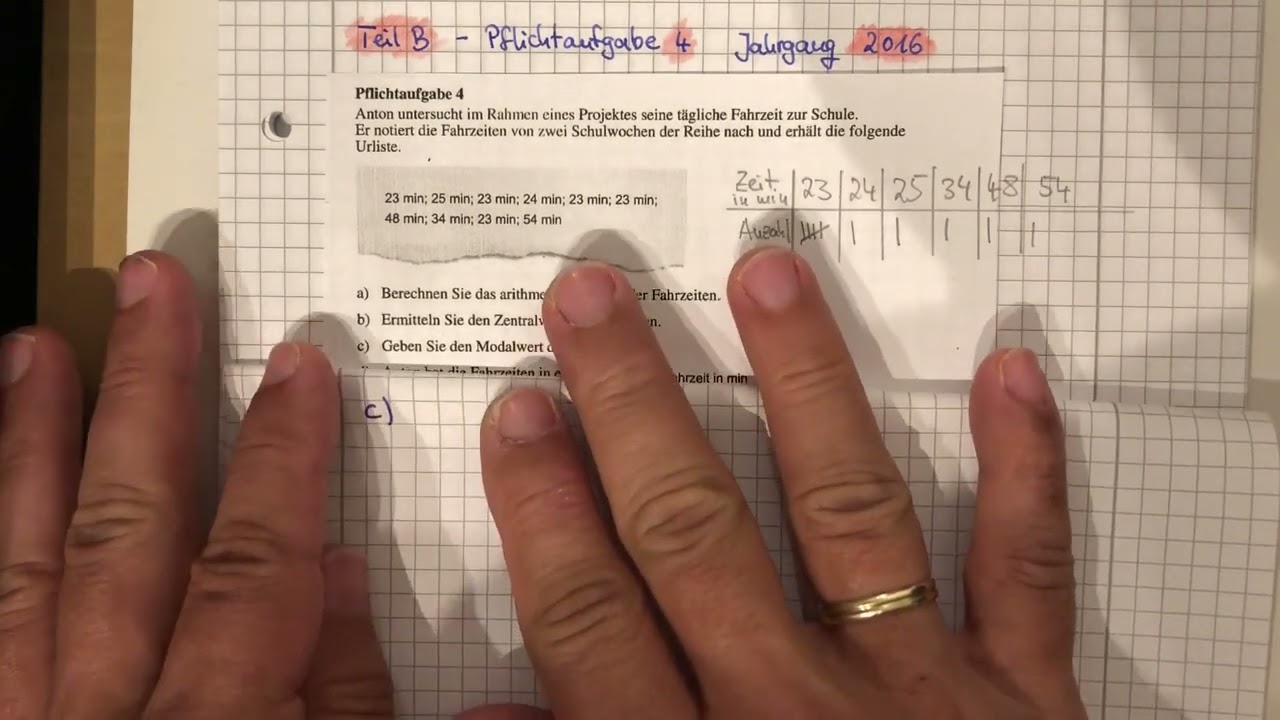 Teil B - Pflichtaufgabe 4 Jahrgang 2016
Pflichtaufgabe 4
Anton untersucht im Rahmen eines Projektes seine tägliche Fahrzeit zur Schule.
Er notiert die Fahrzeiten von zwei Schulwochen der Reihe nach und erhält die folgende
Urliste.
23 min; 25 min; 23 min; 24 min; 23 min; 23 min;
48 min; 34 min; 23 min; 54 min
Zeit in min | 23 | 24 | 25 | 34 | 48 | 54
Anzahl | 卌 | | | | | | | | | |
a) Berechnen Sie das Fahrzeiten.
b) Ermitteln Sie den
c) Geben Sie den Modalwert
die Fahrzeiten in in min
c)